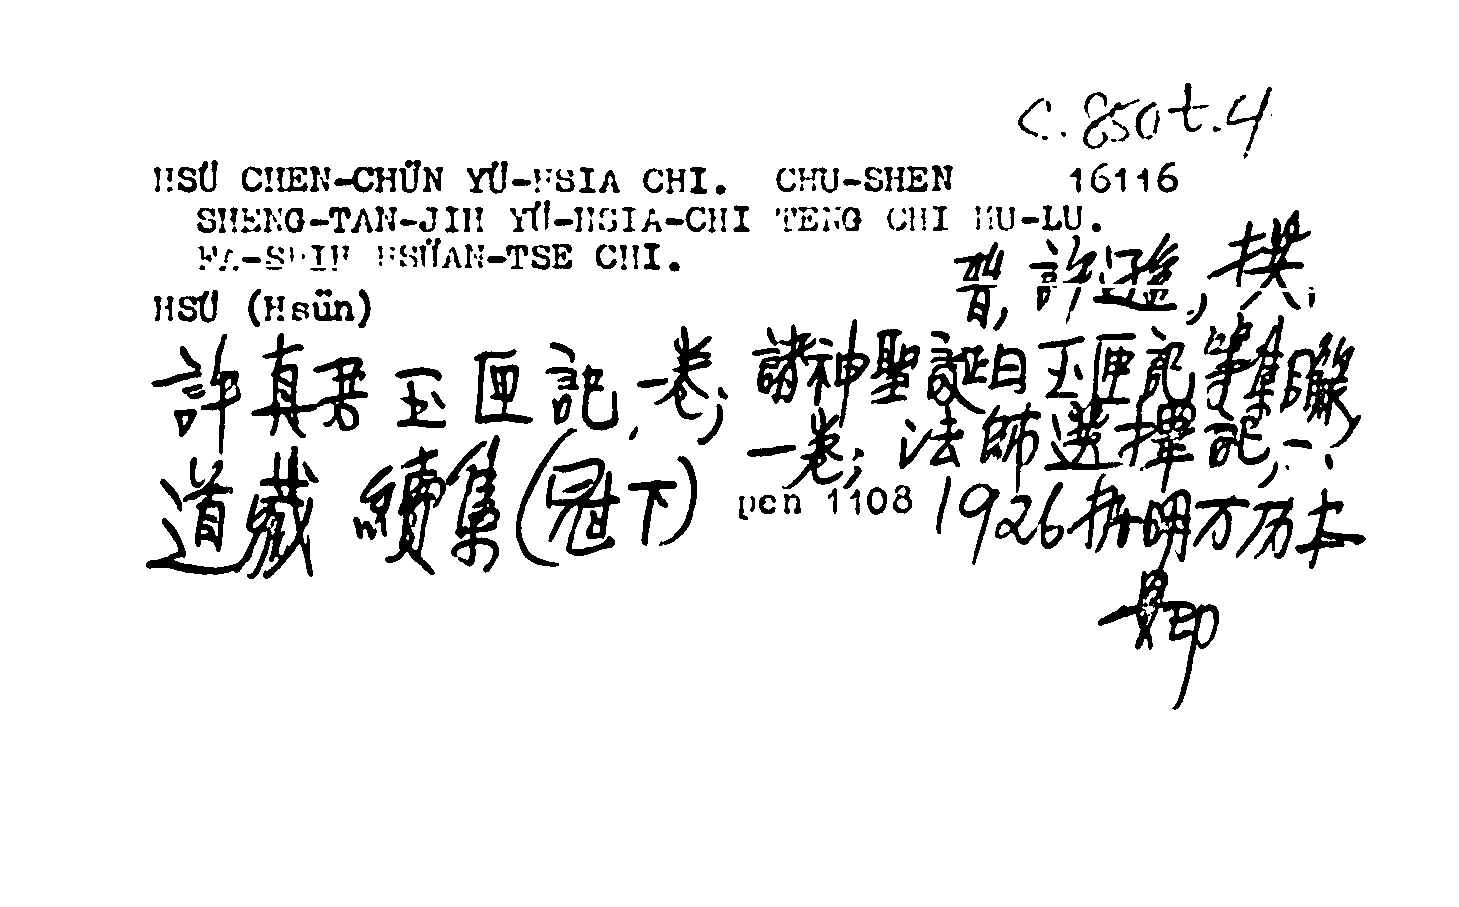 C. 850 t.4
HSÜ CHEN-CHÜN YÜ-HSIA CHI. CHU-SHEN 16116
SHENG-TAN-JIH YÜ-HSIA-CHI TENG CHI HU-LU.
FA-SHIH HSÜAN-TSE CHI.
晋, 許遜, 撰.
HSÜ (Hsün)
許真君玉匣記, 一卷; 諸神聖誕日玉匣記等集
一卷; 法師選擇記, 一.
道藏 續集 (冠下) pen 1108 1926 明万历本
影印